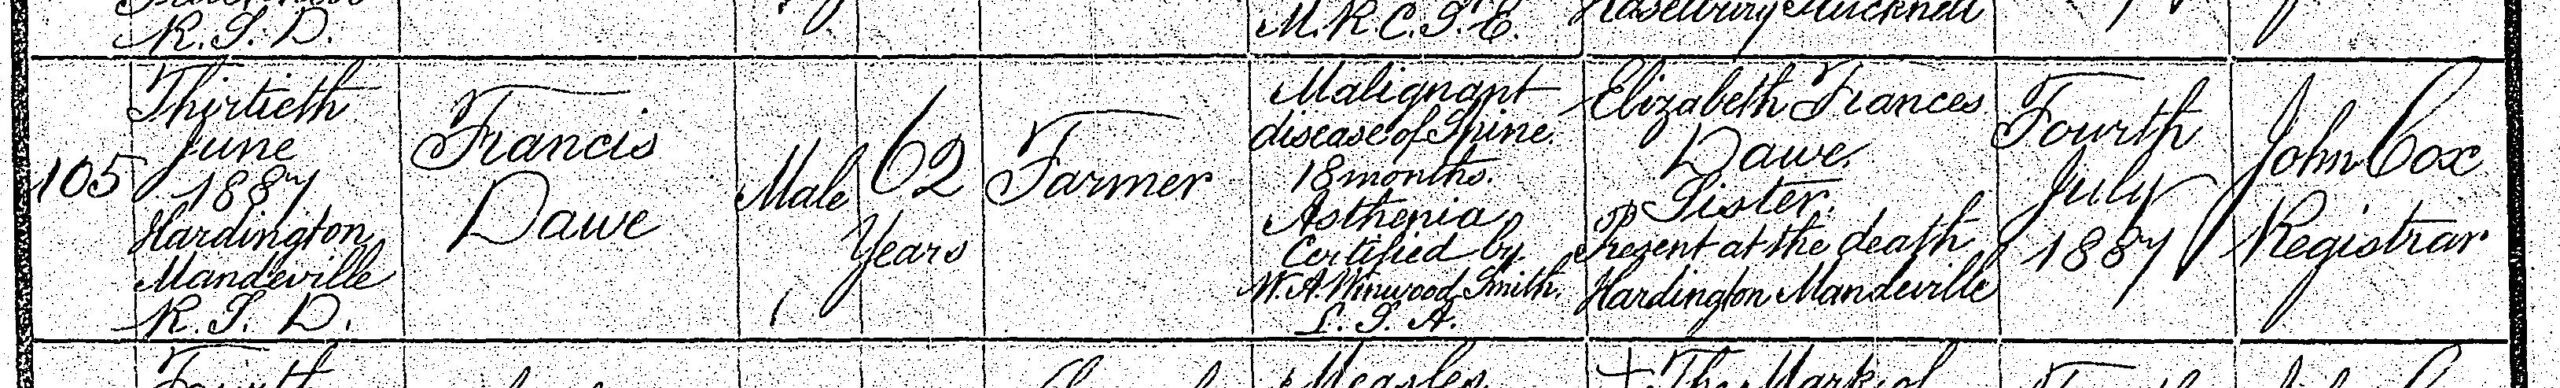 R. S. D.
M.R.C.S.E.
105
Thirtieth
June
1887
Hardington
Mandeville
R. S. D.
Francis
Dawe
Male
62
Years
Farmer
Malignant
disease of Spine.
18 months.
Asthenia
Certified by
W. A. Winwood Smith.
L. S. A.
Elizabeth Frances
Dawe.
Sister.
Present at the death
Hardington Mandeville
Fourth
July
1887
John Cox
Registrar
Fourth
Measles
The Mark of